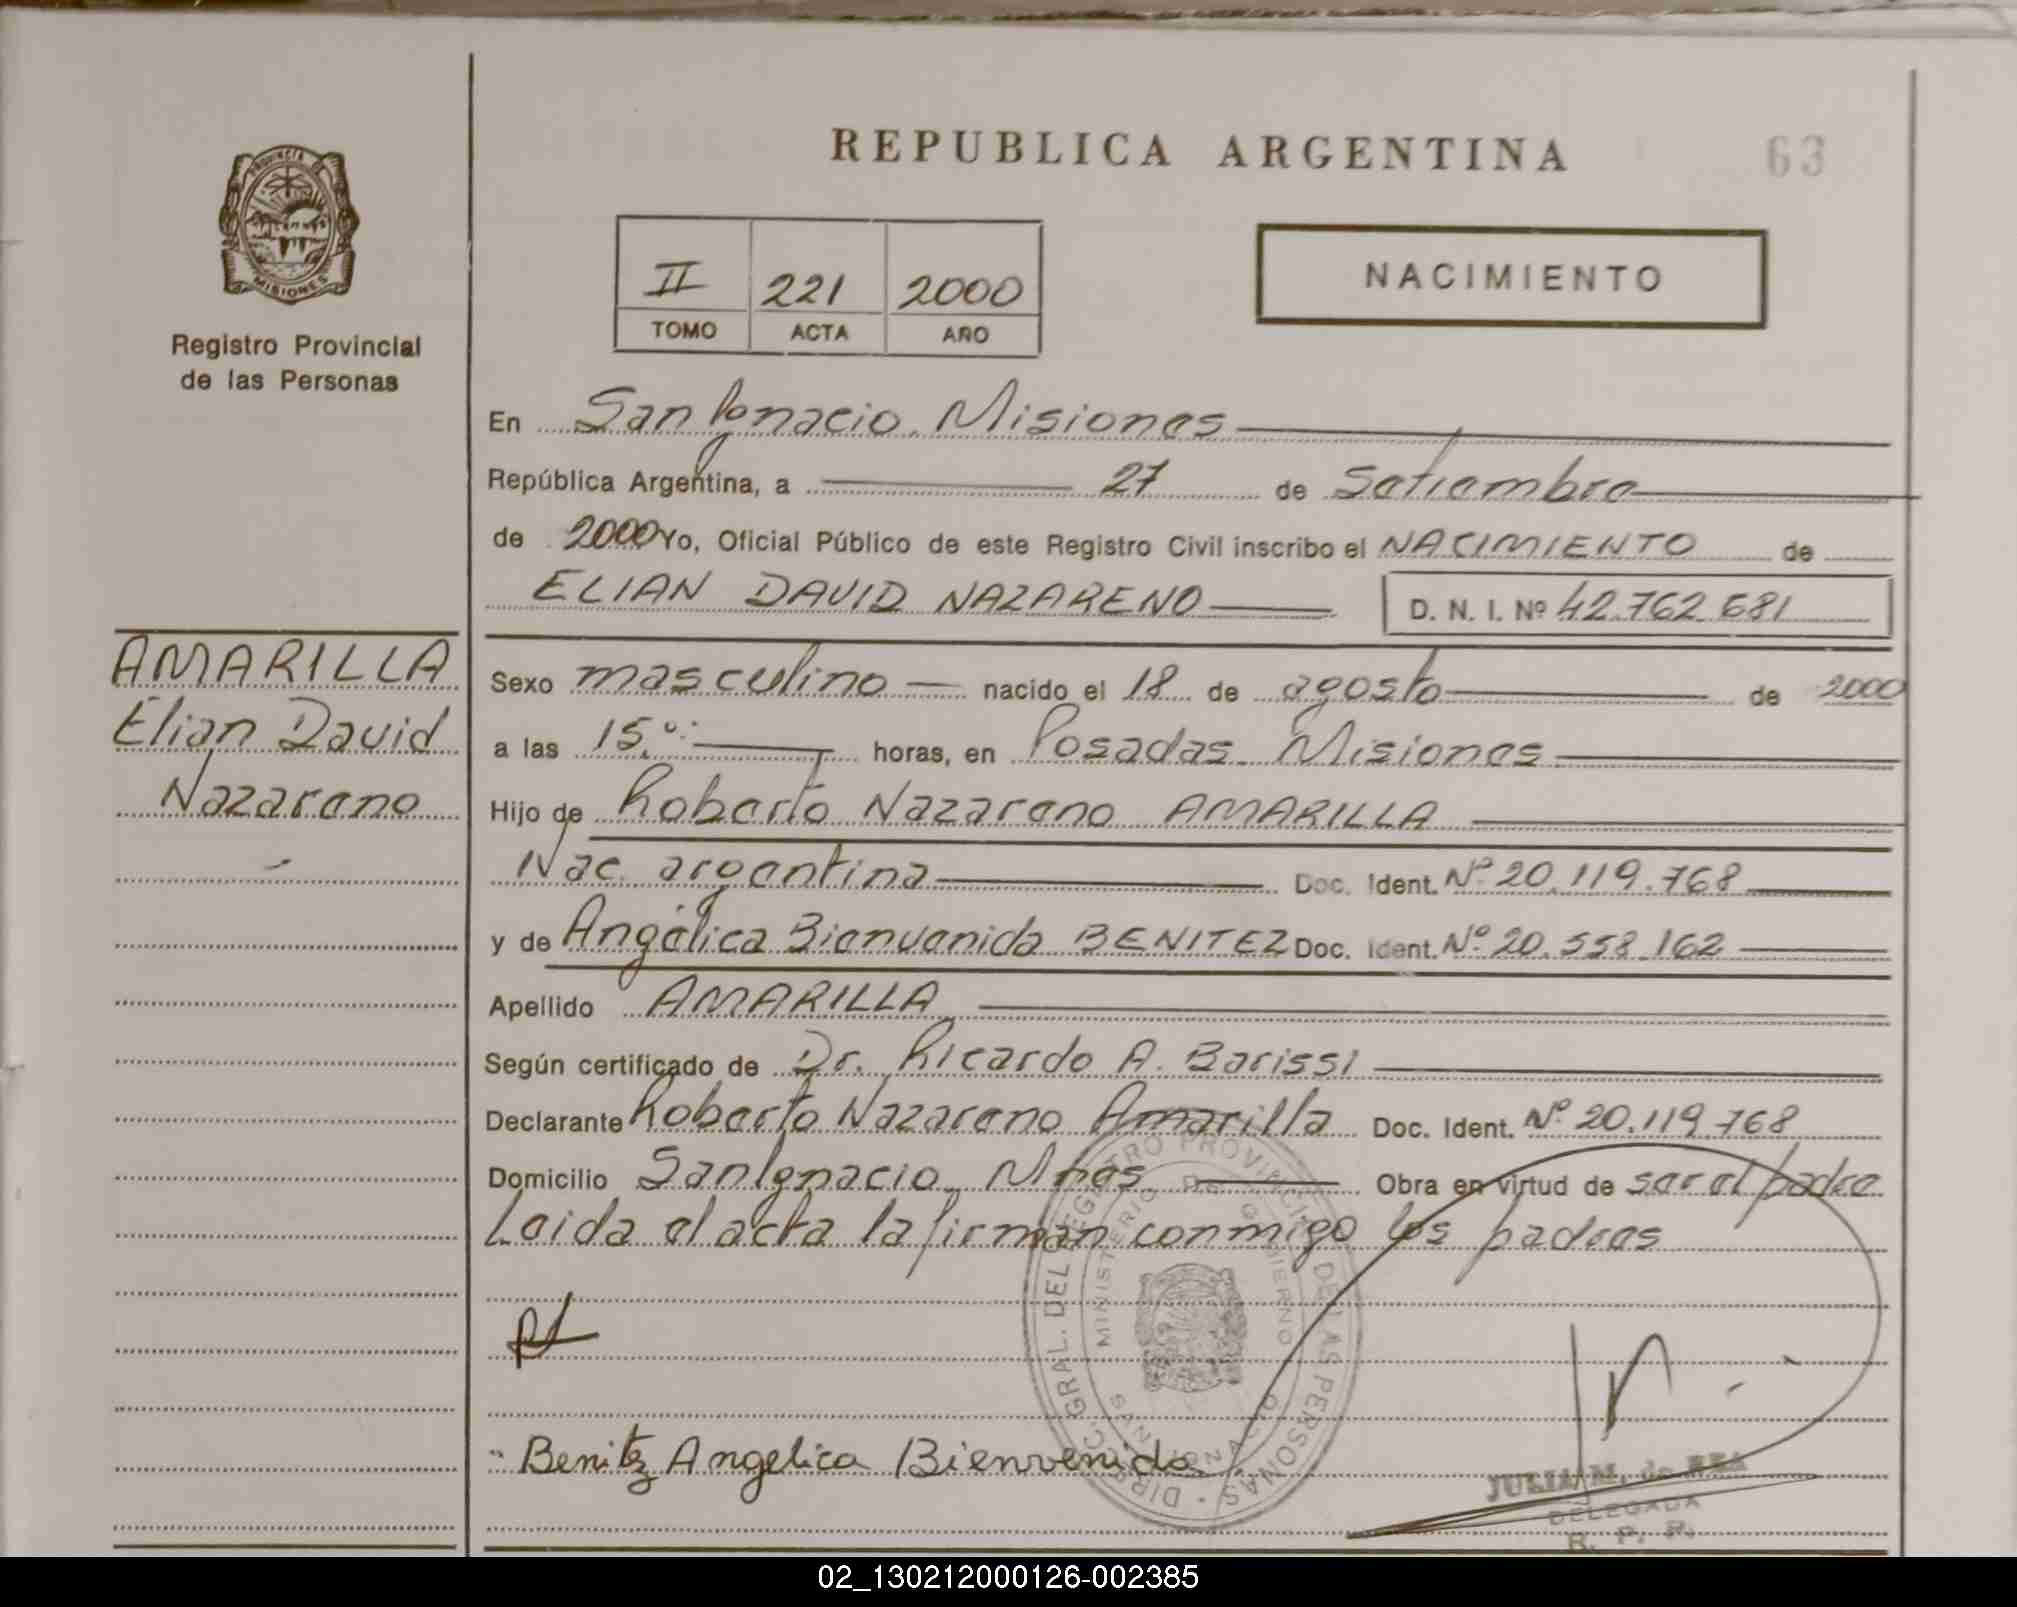 REPUBLICA ARGENTINA 63
PROVINCIA DE MISIONES
Registro Provincial
de las Personas
II 221 2000
TOMO ACTA AÑO
NACIMIENTO
En San Ignacio Misiones
República Argentina, a 27 de Setiembre
de 2000 Yo, Oficial Público de este Registro Civil inscribo el NACIMIENTO de
ELIAN DAVID NAZARENO D. N. I. Nº 42.762.681
AMARILLA
Elian David
Nazareno
Sexo masculino nacido el 18 de agosto de 2000
a las 15. horas, en Posadas Misiones
Hijo de Roberto Nazareno AMARILLA
Nac. argentina Doc. Ident. Nº 20.119.768
y de Angélica Bienvenida BENITEZ Doc. Ident. Nº 20.558.162
Apellido AMARILLA
Según certificado de Dr. Ricardo A. Barissi
Declarante Roberto Nazareno Amarilla Doc. Ident. Nº 20.119.768
Domicilio San Ignacio, Mnes Obra en virtud de ser el padre
Leida el acta la firman conmigo los padres
DIRECC. GRAL. DEL REGISTRO PROVINCIAL DE LAS PERSONAS
MINISTERIO DE GOBIERNO
SAN IGNACIO
Benitez Angelica Bienvenida
JULIA M. de REA
DELEGADA
R. P. P.
02_130212000126-002385